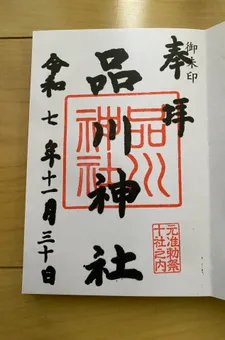 奉拝
御朱印
品川神社
品川
神社
元准勅祭
十社之内
令和七年十一月三十日